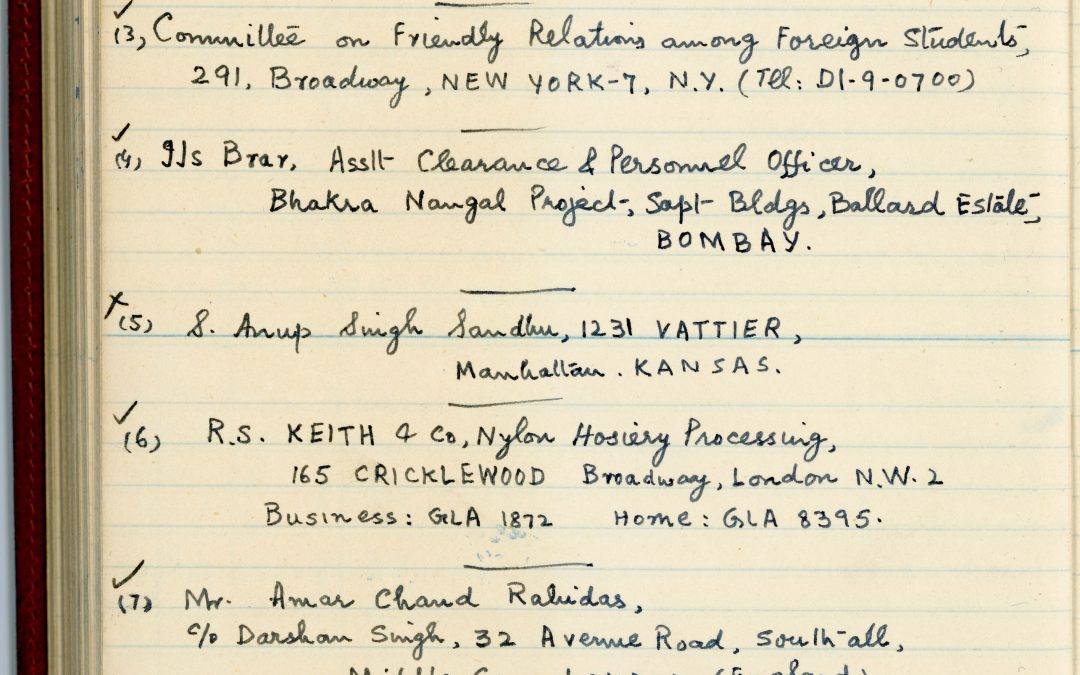 (3, Committee on Friendly Relations among Foreign Students,
291, Broadway, NEW YORK-7, N.Y. (Tel: DI-9-0700)
(4, Brar, Asstt Clearance & Personnel Officer,
Bhakra Nangal Project, Sapt Bldgs, Ballard Estate,
BOMBAY.
(5) S. Anup Singh Sandhu, 1231 VATTIER,
Manhattan. KANSAS.
(6) R.S. KEITH & Co, Nylon Hosiery Processing,
165 CRICKLEWOOD Broadway, London N.W. 2
Business: GLA 1872 Home: GLA 8395.
(7) Mr. Amar Chand Rabidas,
c/o Darshan Singh, 32 Avenue Road, South-all,
(England)